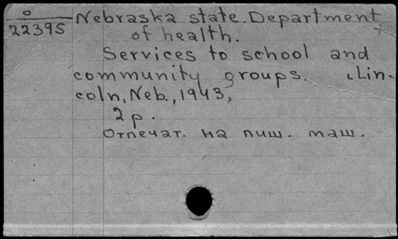 0
22395
Nebraska state. Department
of health.
Services to school and
community groups. Lin-
coln, Neb., 1943,
2 p.
Отпечат. на пиш. маш.